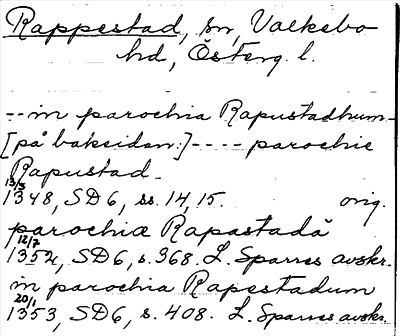 Rappestad, sn, Valkebo
hd, Österg. l.
-- in parochia Rapustadhum -
[på baksidan:] ---- parochie
Rapustad -
13/3
1348, SD6, ss. 14, 15. orig.
parochiæ Rapastadå
12/7
1352, SD6, s. 368. L. Sparres avskr.
in parochia Rapestadum
20/1
1353, SD6, s. 408. L. Sparres avskr.